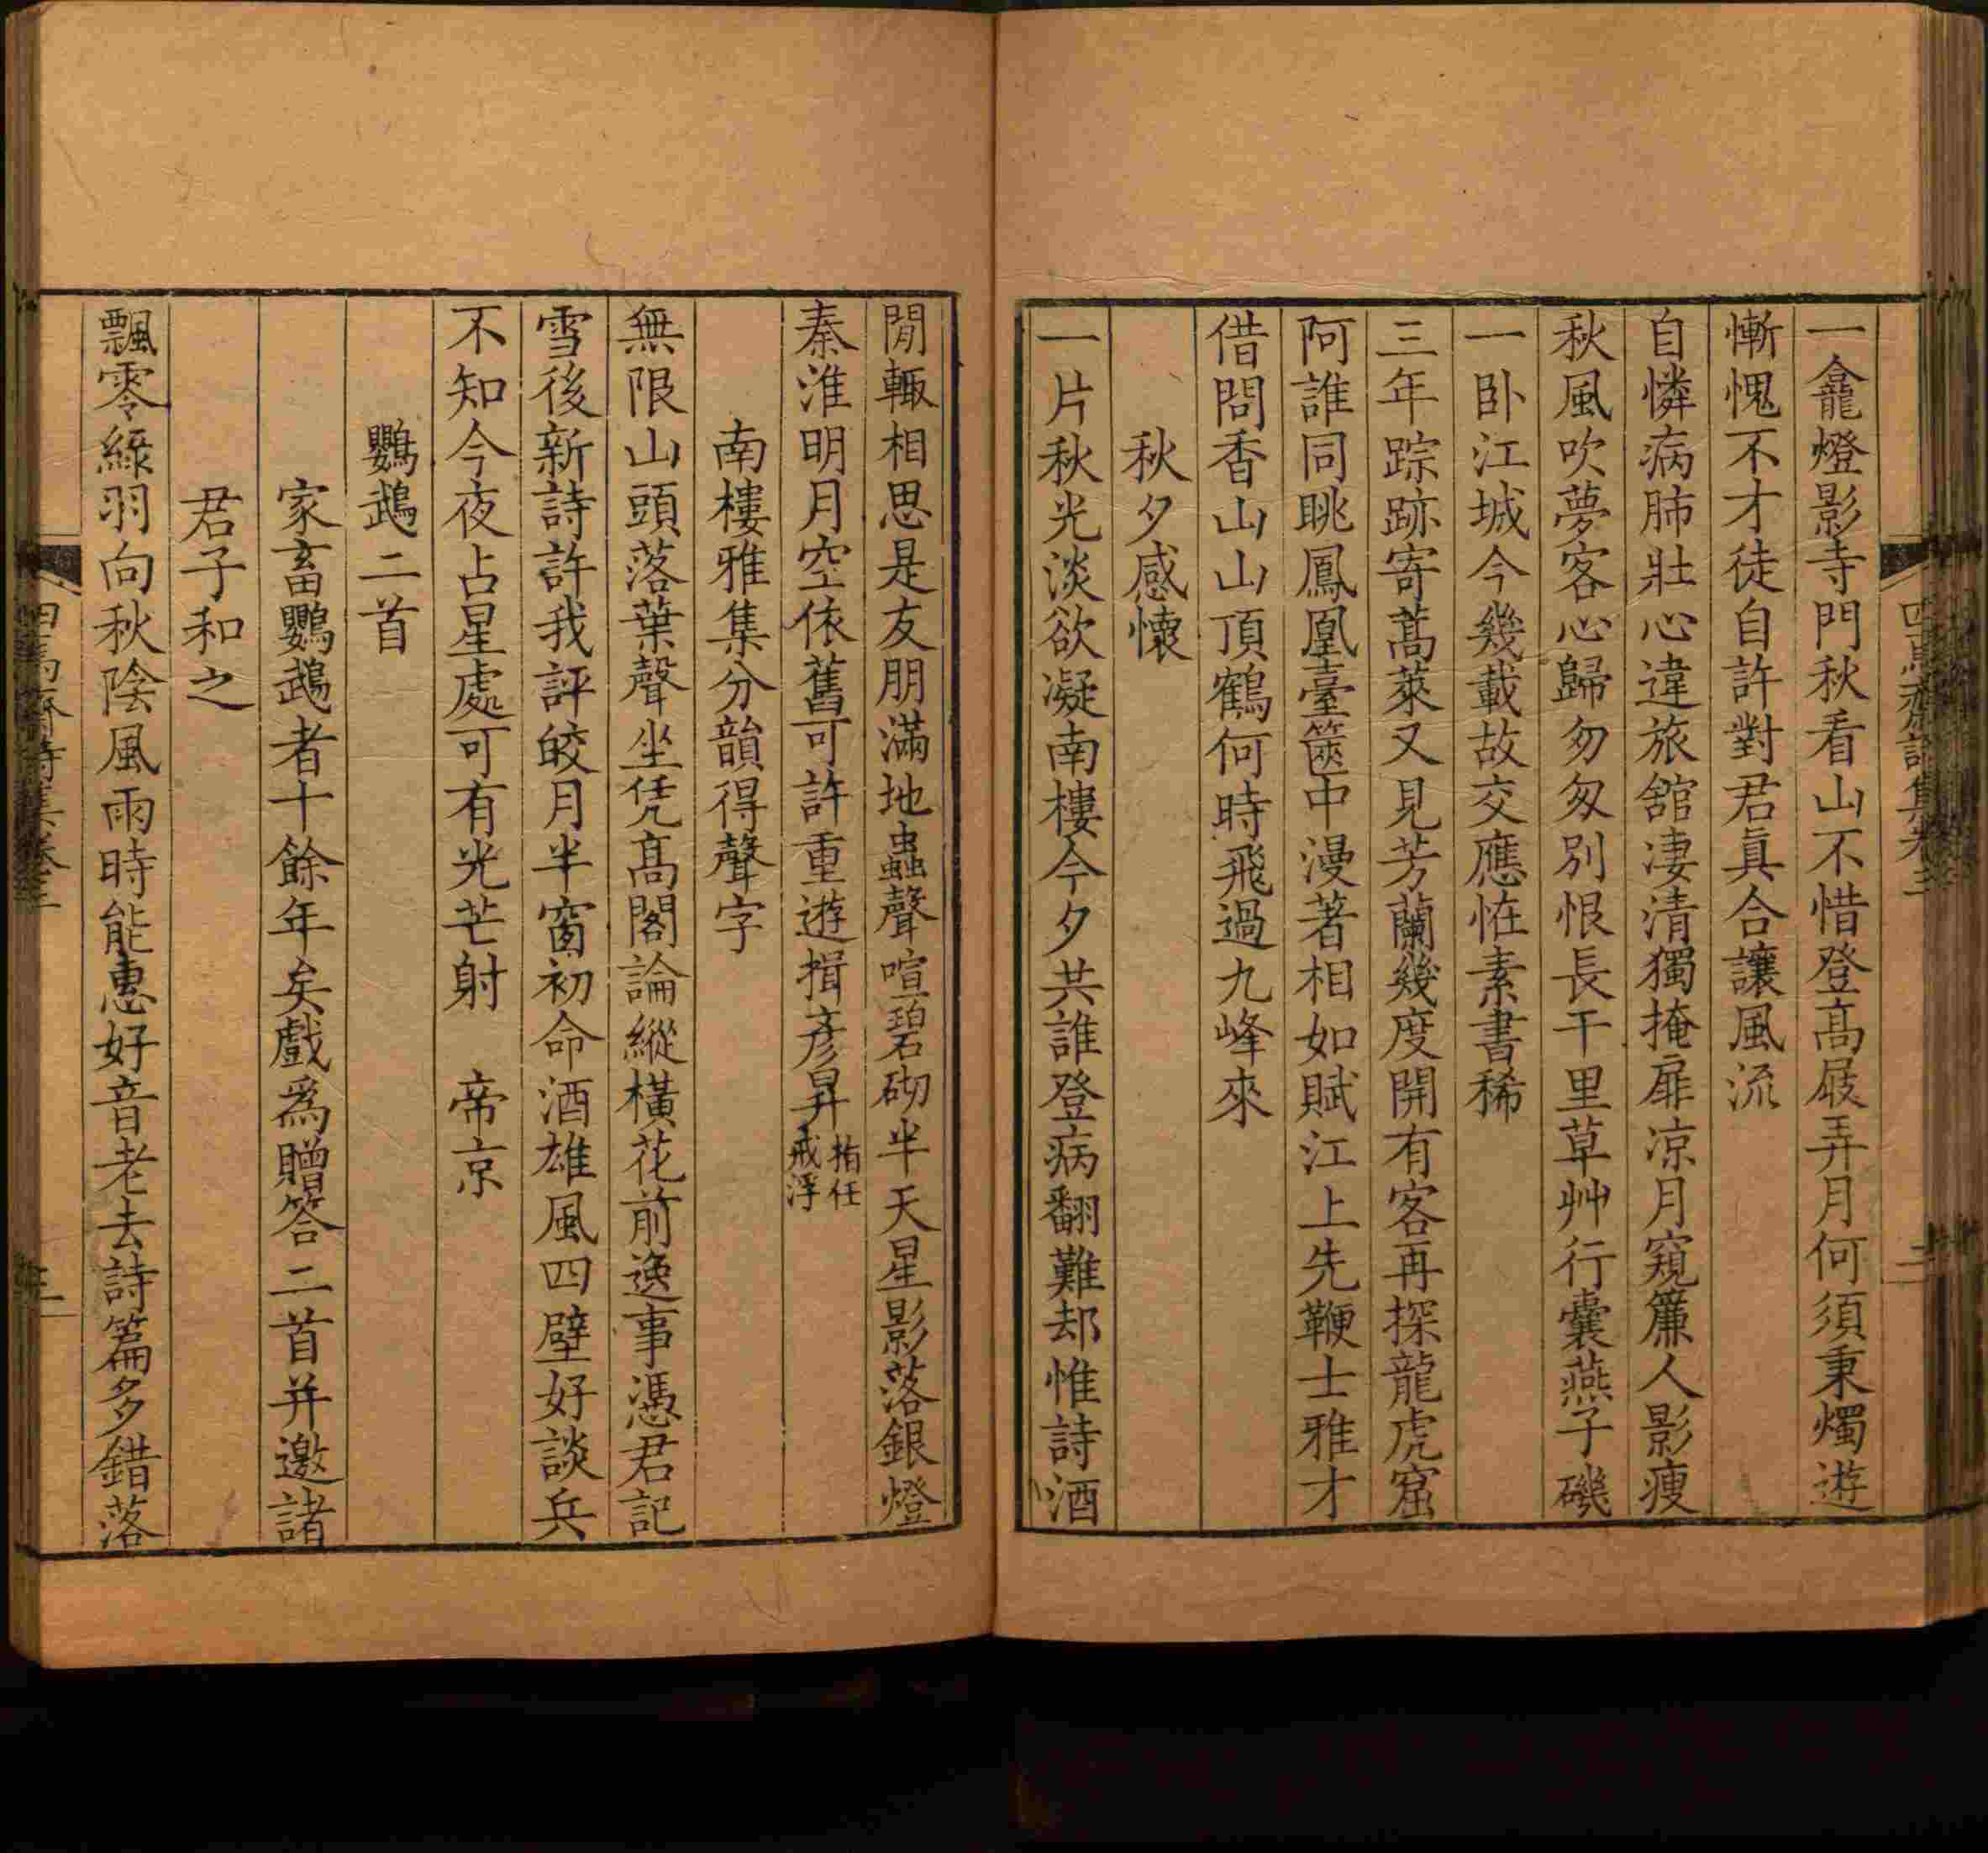 一龕燈影寺門秋看山不惜登高屐弄月何須秉燭遊
慚愧不才徒自許對君眞合讓風流
自憐病肺壯心違旅舘凄清獨掩扉凉月窺簾人影瘦
秋風吹夢客心歸匆匆別恨長干里草艸行囊燕子磯
一卧江城今幾載故交應恠素書稀
三年踪跡寄蒿萊又見芳蘭幾度開有客再探龍虎窟
阿誰同眺鳳凰臺篋中漫著相如賦江上先鞭士雅才
借問香山山頂鶴何時飛過九峰來
秋夕感懷
一片秋光淡欲凝南樓今夕共誰登病翻難却惟詩酒
閒輙相思是友朋滿地蟲聲喧碧砌半天星影落銀燈
秦淮明月空依舊可許重遊揖彥昇指任戒浮
南樓雅集分韻得聲字
無限山頭落葉聲坐凭高閣論縱橫花前逸事憑君記
雪後新詩許我評皎月半窗初命酒雄風四壁好談兵
不知今夜占星處可有光芒射　帝京
鸚鵡二首
家畜鸚鵡者十餘年矣戲爲贈答二首并邀諸
君子和之
飄零綠羽向秋陰風雨時能惠好音老去詩篇多錯落